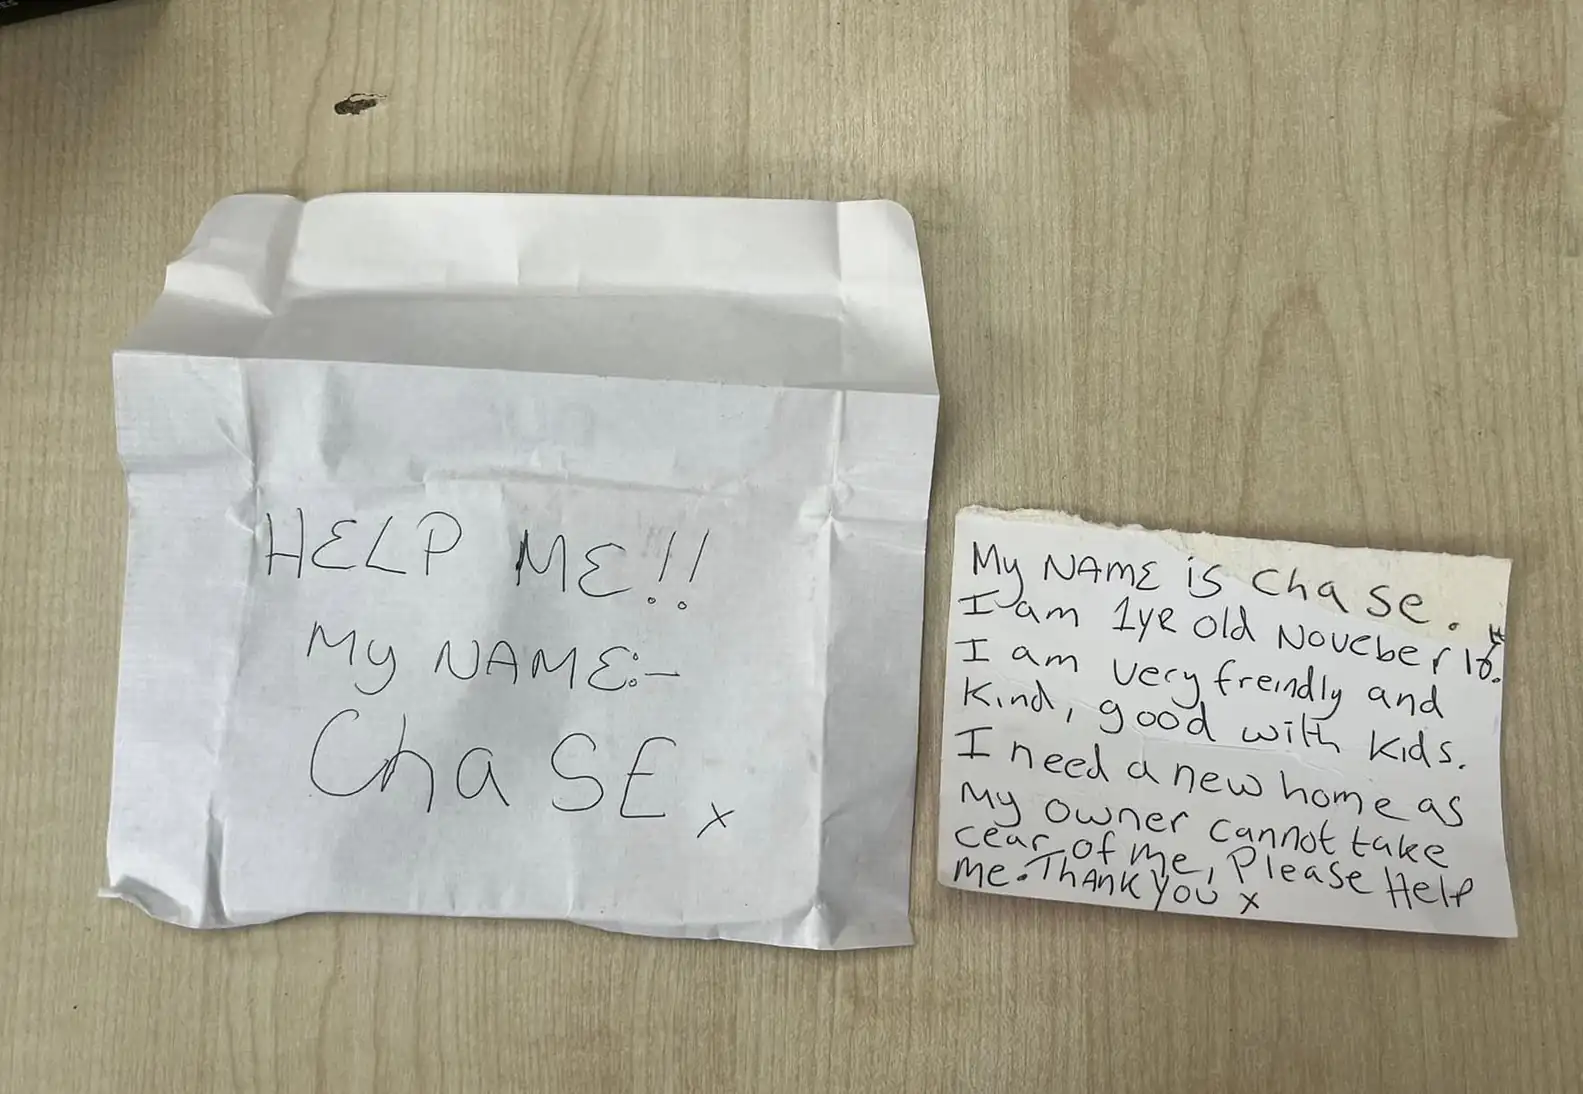 HELP ME!!
My NAME:-
ChaSE x
My NAME is Chase.
I am 1yR old Noveber
I am very freindly and
Kind, good with kids.
I need a new home as
My owner cannot take
cear of me, Please Help
me. Thank you x